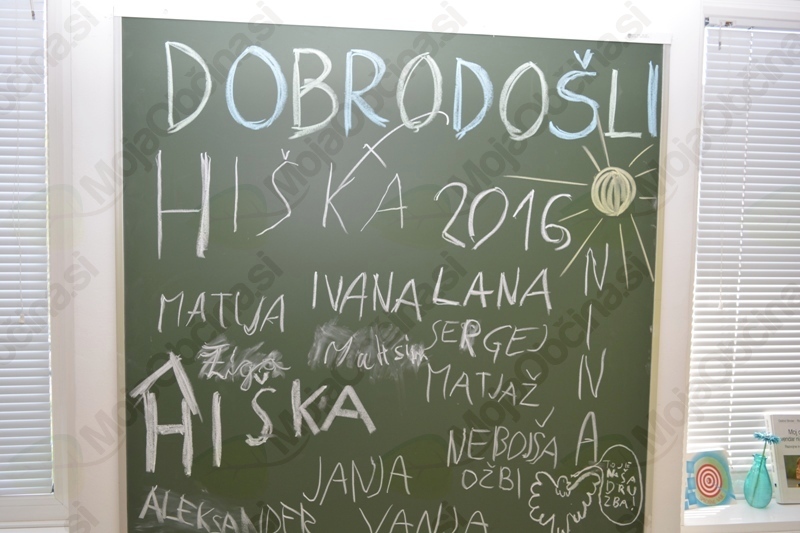 DOBRODOŠLI
HIŠKA 2016
NINA
IVANA LANA
MATIJA
SERGEJ
Žiga Maksim
MATJAŽ
HIŠKA
NEBOJŠA
OŽBI
JANJA
TO JE
NAŠA
DRU
ŽBA!
ALEKSANDER VANJA
MojaObčina.si